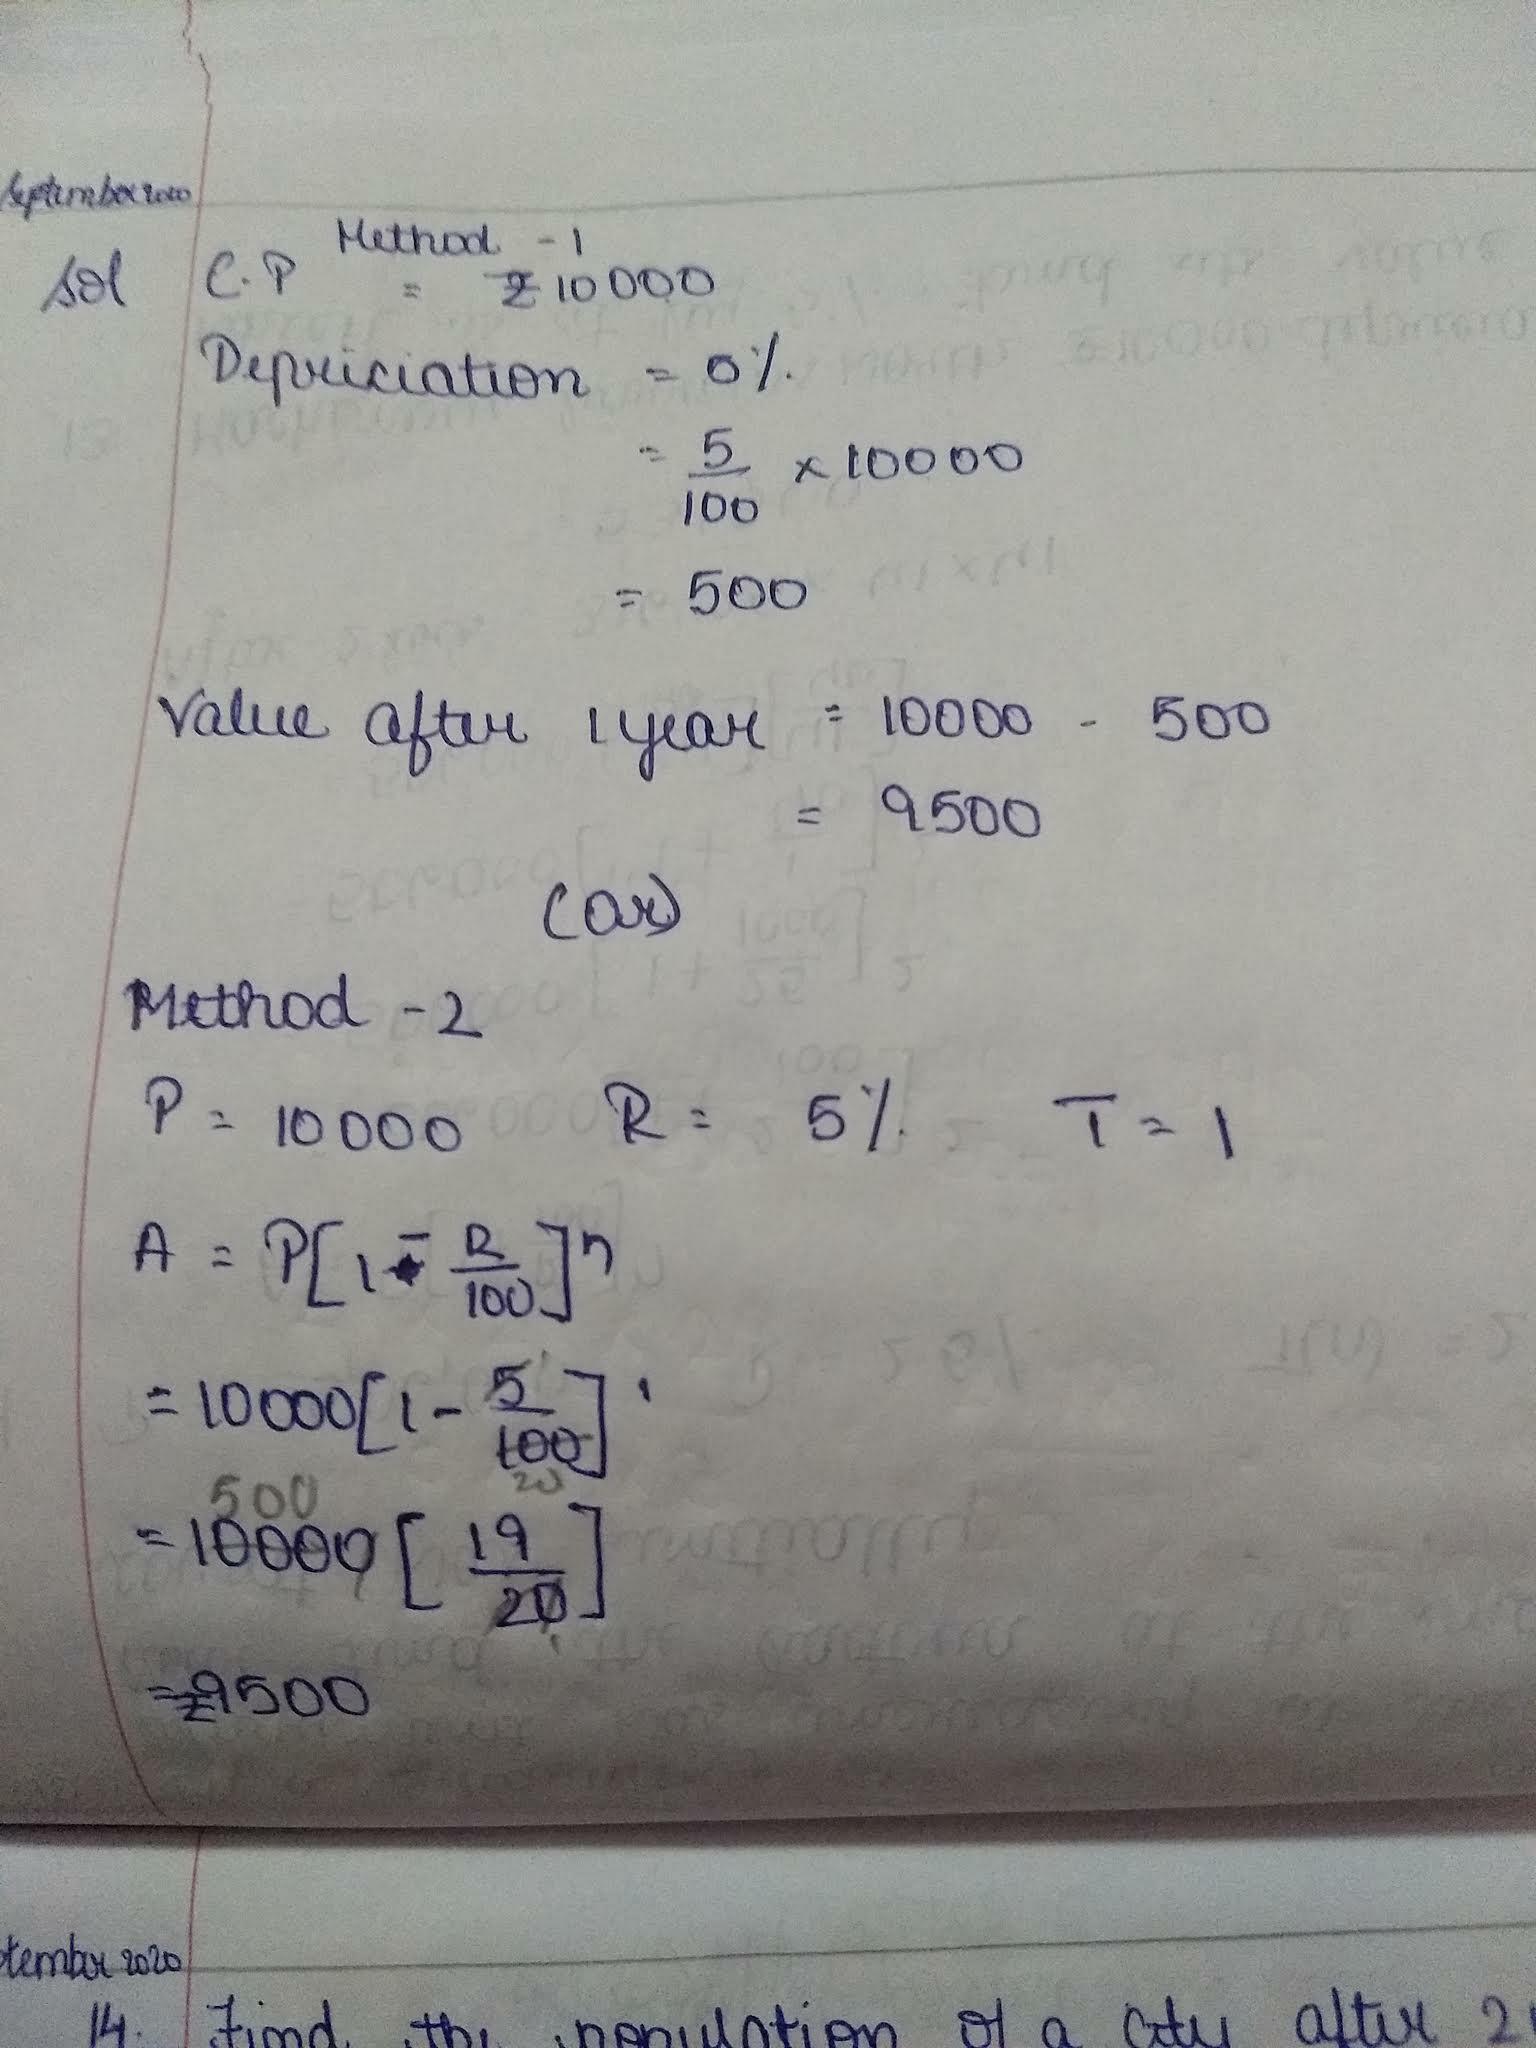 September 2020
Method - 1
Sol C.P = ₹ 10000
Depriciation = 0%.
= 5/100 × 10000
= 500
Value after 1 year = 10000 - 500
= 9500
(or)
Method - 2
P = 10000 R = 5% T = 1
A = P[1 - R/100]n
= 10000[1 - 5/100]1
20
500
= 10000 [19/20]
= ₹9500
tember 2020
14. Find the population of a city after 2